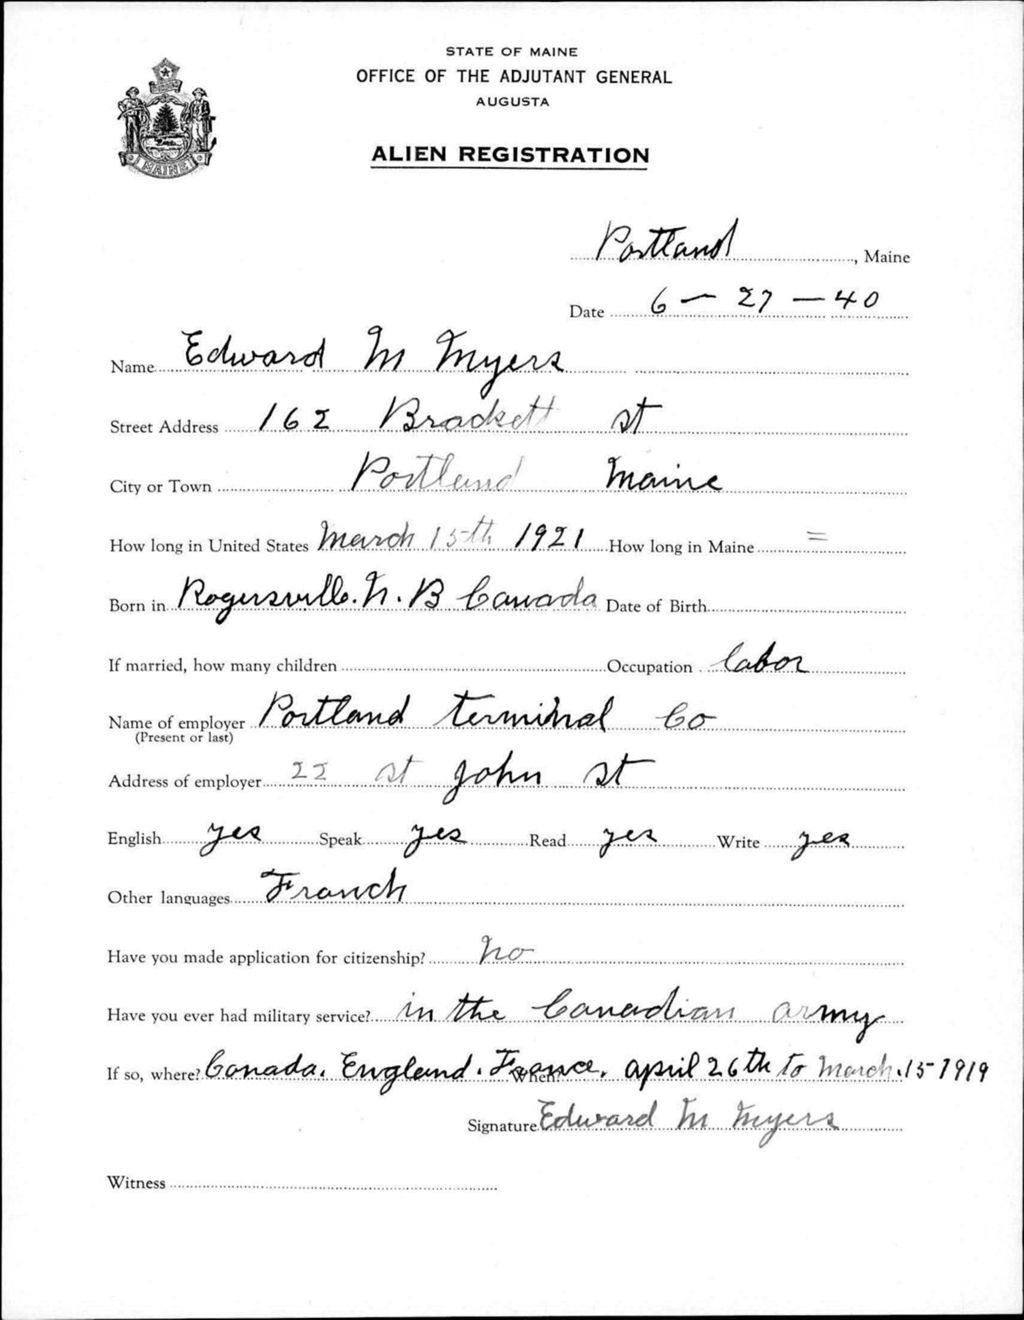 STATE OF MAINE
OFFICE OF THE ADJUTANT GENERAL
AUGUSTA
ALIEN REGISTRATION
MAINE
Portland, Maine
Date 6 - 27 - 40
Name Edward M Myers
Street Address 162 Brackett st
City or Town Portland Maine
How long in United States March 15th 1921 How long in Maine =
Born in Rogersville. N. B Canada Date of Birth
If married, how many children Occupation labor
Name of employer Portland terminal Co
(Present or last)
Address of employer 22 st John st
English yes Speak yes Read yes Write yes
Other languages Franch
Have you made application for citizenship? No
Have you ever had military service? in the Canadian army
If so, where? Canada. England. France. When? april 26th to March. 15 1919
Signature Edward M Myers
Witness